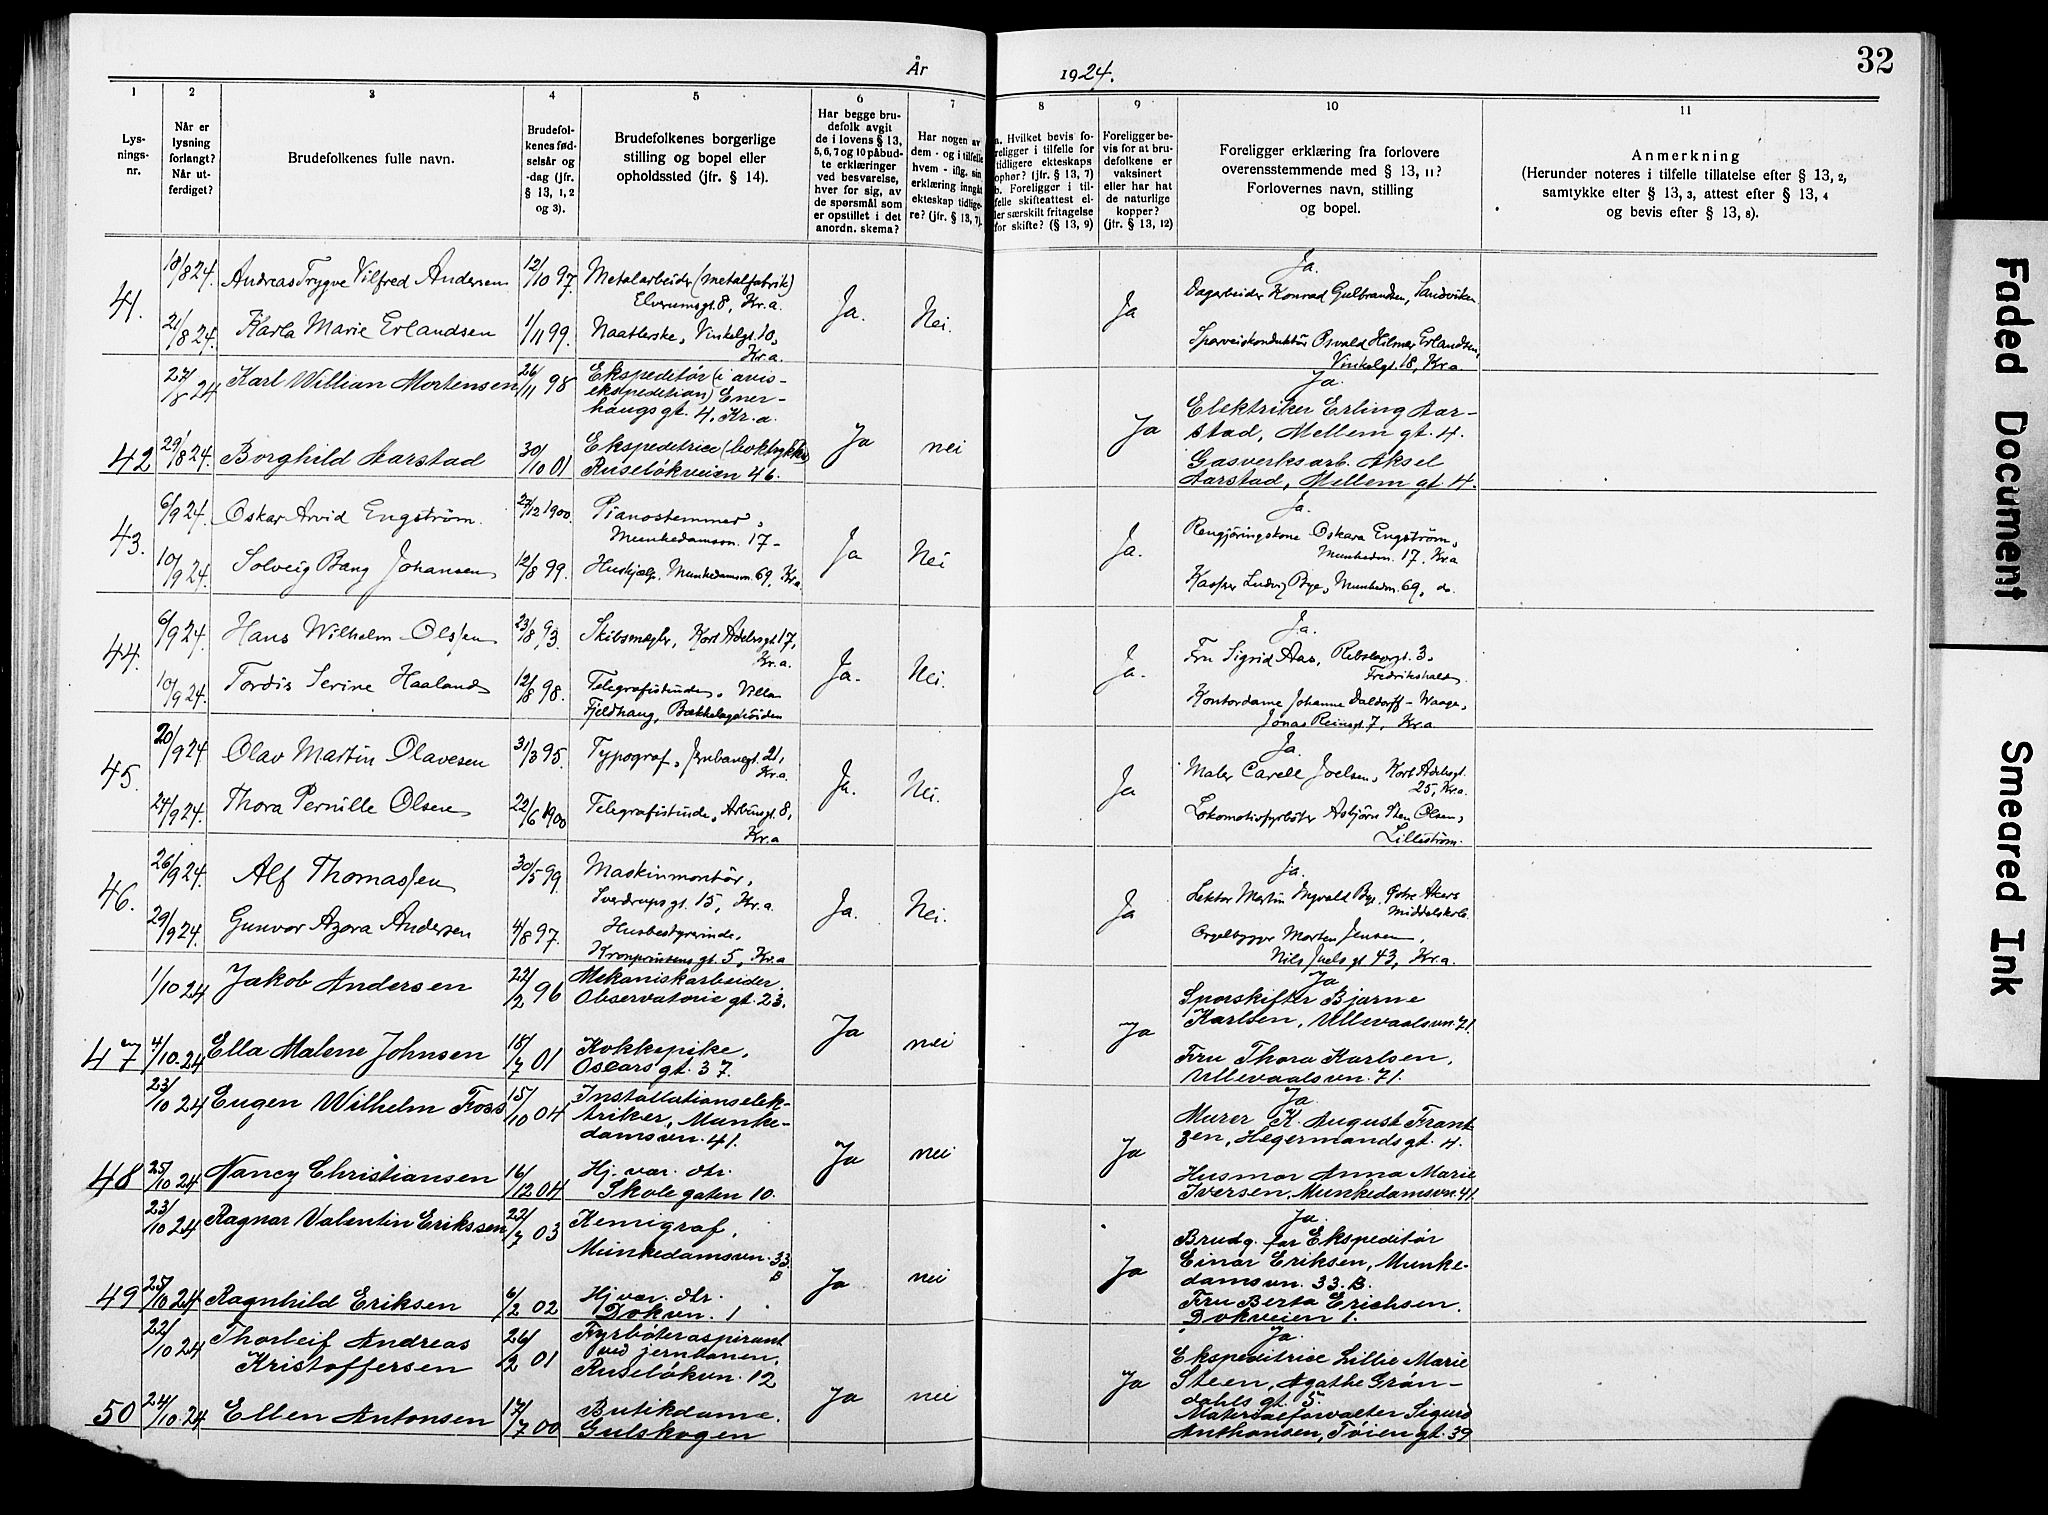 32
År 1924.
1 2 3 4 5 6 7 8 9 10 11
Lys-
nings-
nr.
Når er
lysning
forlangt?
Når ut-
ferdiget?
Brudefolkenes fulle navn.
Brudefol-
kenes fød-
selsår og
-dag (jfr.
§ 13, 1, 2
og 3).
Brudefolkenes borgerlige
stilling og bopel eller
opholdssted (jfr. § 14).
Har begge bru-
defolk avgit
de i lovens § 13,
5, 6, 7 og 10 påbud-
te erklæringer
ved besvarelse,
hver for sig, av
de spørsmål som
er opstillet i det
anordn. skema?
Har nogen av
dem - og i tilfelle
hvem - iflg. sin
erklæring inngått
ekteskap tidlige-
re? (jfr. § 13, 7).
a. Hvilket bevis fo-
religger i tilfelle for
tidligere ekteskaps
ophør? (jfr. § 13, 7)
b. Foreligger i til-
felle skifteattest el-
ler særskilt fritagelse
for skifte? (§ 13, 9)
Foreligger be-
vis for at bru-
defolkene er
vaksinert
eller har hat
de naturlige
kopper?
(jfr. § 13, 12)
Foreligger erklæring fra forlovere
overensstemmende med § 13, 11?
Forlovernes navn, stilling
og bopel.
Anmerkning
(Herunder noteres i tilfelle tillatelse efter § 13, 2,
samtykke efter § 13, 3, attest efter § 13, 4
og bevis efter § 13, 8).
41.
18/8 24.
Andreas Trygve Vilfred Andersen
12/10 97.
Metalarbeider (metalfabrik)
Elverumsgt. 8, Kr.a.
21/8 24.
Karla Marie Erlandsen
1/11 99.
Naatlerske, Vinkelgt. 10,
Kr.a.
Ja.
Nei.
Ja
Ja.
Dagarbeider Konrad Gulbrandsen, Sandviken
Sporveiskonduktör Osvald Hilmar Erlandsen,
Vinkelgt. 18, Kr.a.
42
27/8 24
Karl Willian Mortensen
26/11 98
Ekspeditör (i avis-
ekspedition) Ener-
haugsgt. 4, Kr.a.
29/8 24.
Borghild Aarstad
30/10 01
Ekspeditrice (boktrykkeri)
Ruselökveien 46.
Ja
nei
Ja
Ja.
Elektriker Erling Aar-
stad, Mellem gt. 4.
Gasverksarb. Aksel
Aarstad, Mellem gt. 4.
43.
6/9 24.
Oskar Arvid Engström.
27/12 1900.
Pianostemmer,
Munkedamsvn. 17 -
10/9 24.
Solveig Bang Johansen
12/8 99.
Hushjælp, Munkedamsvn. 69, Kr.a.
Ja
Nei
Ja.
Ja.
Rengjöringskone Oskara Engström,
Munkedm. 17, Kr.a
Kasper Ludvig Bye, Munkedm. 69, do.
44.
6/9 24.
Hans Wilhelm Olssen
23/8 93.
Skibsmægler, Kort Adelersgt. 17,
Kr.a.
10/9 24.
Tordis Serine Haaland
12/8 98.
Telegrafistinde, Villa
Fjeldhaug, Bækkelagshöiden
Ja.
Nei.
Ja.
Ja.
Fru Sigrid Aas, Rebslagergt. 3,
Fredrikshald.
Kontordame Johanne Daldorff - Waage,
Jonas Reinsgt. 7, Kr.a
45.
20/9 24.
Olav Martin Olavesen
31/3 95.
Typograf, Jernbanegt. 21,
Kr.a.
24/9 24.
Thora Pernille Olsen
22/6 1900
Telegrafistinde, Arbinsgt. 8,
Kr.a
Ja.
Nei.
Ja
Ja.
Maler Carell Joelsen, Kort Adelersgt.
25, Kr.a.
Lokomotivfyrböter Asbjörn Sten Olsen,
Lilleström.
46.
26/9 24.
Alf Thomassen
30/5 99.
Maskinmontör,
Sverdrupsgt. 15, Kr.a.
29/9 24.
Gunvor Azora Andersen
4/8 97.
Husbestyrerinde,
Kronprinsensgt. 5, Kr.a
Ja.
Nei.
Ja
Ja.
Lektor Martin Nyvald Bye, Östre Akers
Middelskole.
Orgelbygger Morten Jensen,
Nils Juels gt 43, Kr.a.
47
1/10 24
Jakob Andersen
22/2 96
Mekaniskarbeider.
Observatorie gt. 23.
4/10. 24
Ella Malene Johnsen
18/7 01
Kokkepike,
Oscars gt. 37.
Ja
nei
Ja
Ja
Sporskifter Bjarne
Karlsen, Ullevaalsvn. 71.
Fru Thora Karlsen,
Ullevaalsvn. 71.
48
23/10 24
Eugen Wilhelm Foss
15/10 04
Installationselek-
triker, Munke-
damsvn. 41.
25/10 24
Nancy Christiansen
16/12 04
Hj. vær. dtr.
Skolegaten 10.
Ja
nei
Ja
Ja.
Murer K. August Frant-
zen, Hegermandsgt. 4.
Husmor Anna Marie
Iversen, Munkedamsvn. 41.
49
23/10 24
Ragnar Valentin Erikssen
22/7 03
Kemigraf,
Munkedamsvn. 33.
B
25/10 24
Ragnhild Eriksen
6/2 02
Hj. vær. dtr.
Dokvn. 1
Ja
nei
Ja
Ja.
Brudg. far Ekspeditör
Einar Eriksen, Munke-
damsvn. 33. B.
Fru Berta Erichsen.
Dokveien 1.
50
22/10 24
Thorleif Andreas
Kristoffersen
26/2 01
Fyrböteraspirant
ved jernbanen,
Ruselökvn. 12
24/10 24
Ellen Antonsen
17/7 00
Butikdame.
Gulskogen
Ja
nei
Ja
Ja.
Ekspeditrice Lillie Marie
Steen, Agathe Grön-
dahls gt. 5.
Materialforvalter Sigurd
Anthonsen, Töien gt. 39
Faded Document
Smeared Ink